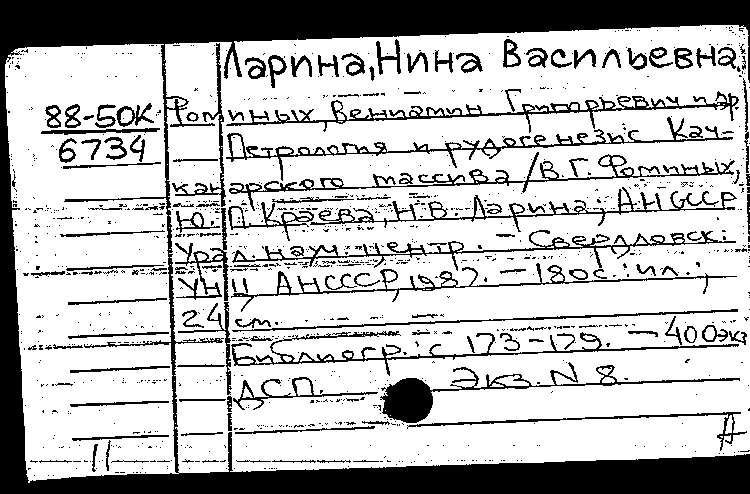 Ларина, Нина Васильевна
88-50К Фоминых, Вениамин Григорьевич и др.
6734 Петрология и рудогенезис Кач-
канарского массива / В.Г. Фоминых,
Ю. П. Краева, Н.В. Ларина; АН СССР
Урал. науч. центр. - Свердловск:
УНЦ АНСССР, 1987. - 180с.: ил.;
24 см.
Библиогр.: с. 173-179. - 400экз
ДСП. Экз. N 8.
11